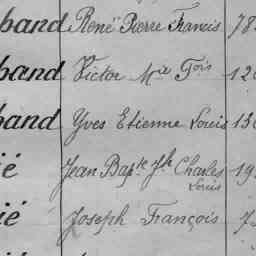 band René Pierre Francis 78
band Victor Mie Fois 120
band Yves Etienne Louis 130
é Jean Bapte Jh Charles 19
Louis
ié Joseph François 7